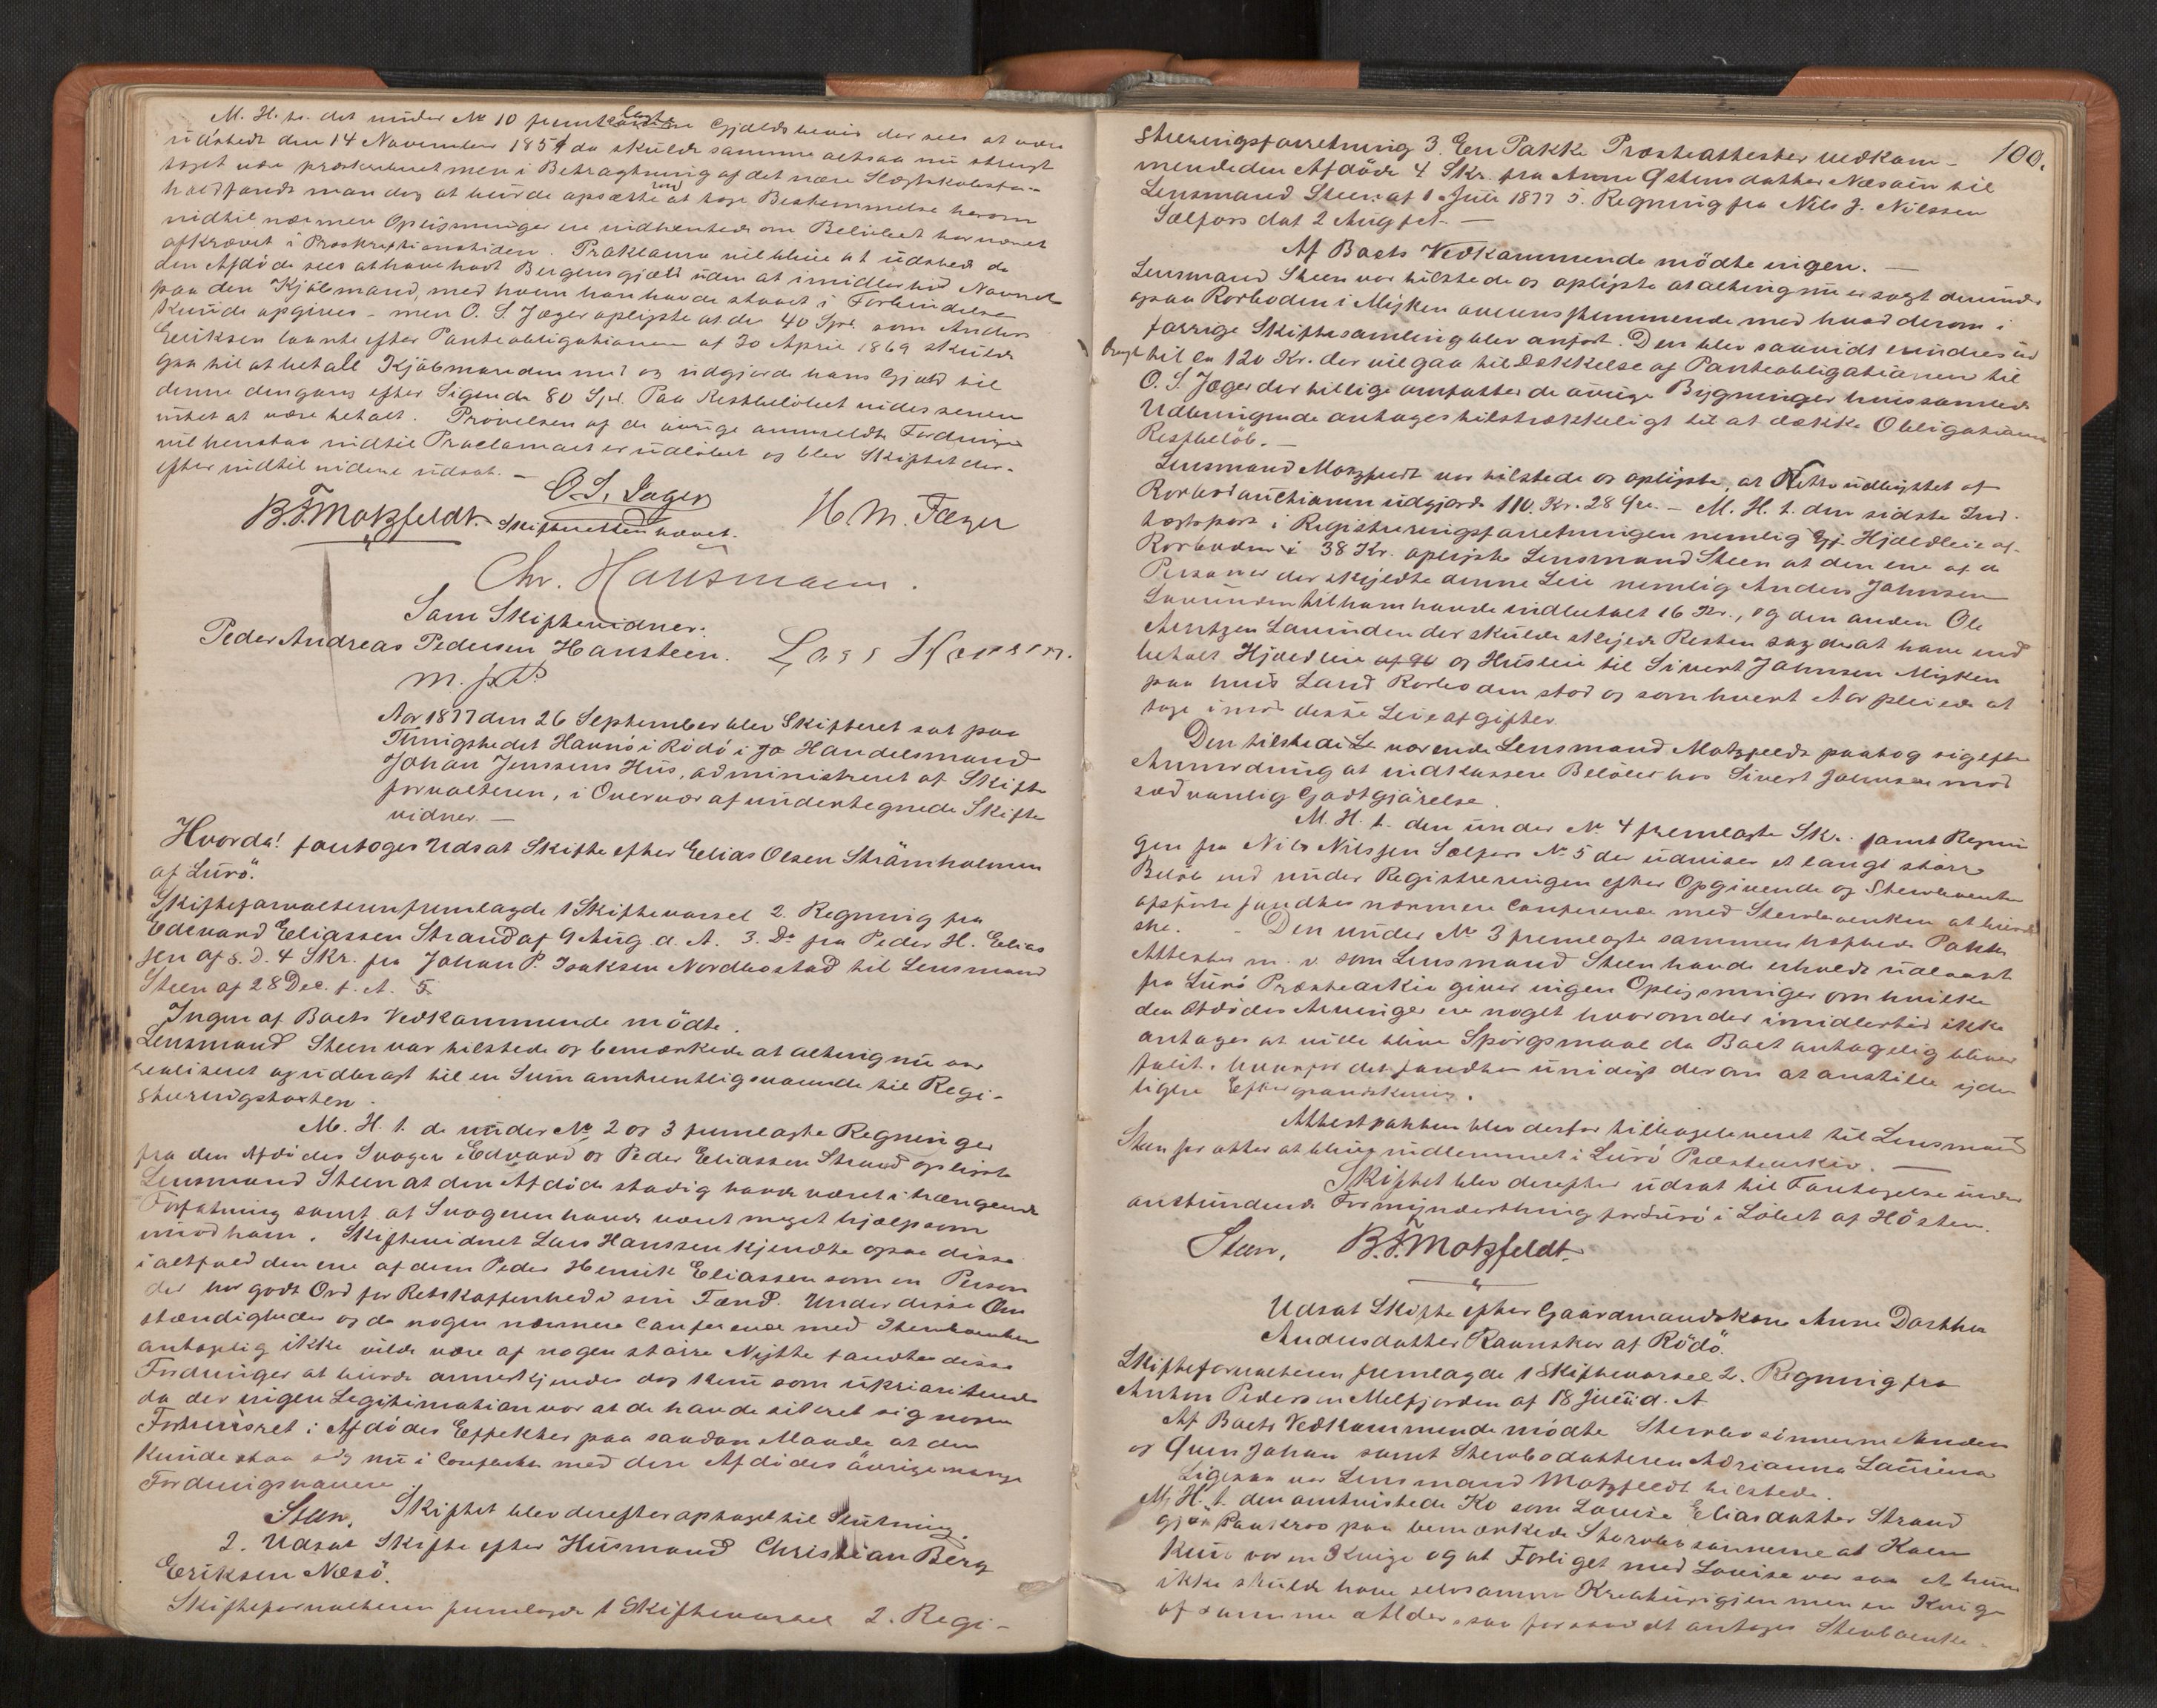 M. H. t. det under No 10 fremlagte Gjældsbevis der sees at være
udstedt den 14 November 1854 da skulde samme altsaa nu strengt
taget være præskriberet men i Betragtning af det nære Slægtskabsfor-
hold fandt man dog at burde opsætte med at tage Bestemmelse herom
indtil nærmere Oplysninger ere indhentede om Beløbet har været
afkrævet i Præskriptionstiden. Proklama vil blive at udstede da
den Afdøde sees at have havt Bergensgjæld uden at imidlertid Navnet
paa den Kjøbmand, med hvem han havde staaet i Forbindelse
kunde opgives - men O. S. Jæger oplyste at de 40 Spd. som Anders
Eriksen laante efter Panteobligationen af 30 April 1869 skulde
gaa til at betale Kjøbmanden med og udgjorde hans Gjæld til
denne dengang efter Sigende 80 Spd. Paa Restbeløbet vides senere
intet at være betalt. Prøvelsen af de øvrige anmeldte Fordringer
vil henstaa indtil Proclamaet er udløbet og blev Skiftet der-
efter indtil videre udsat. -
O. S. Jager
B. F. Motzfeldt. Skifteretten hævet. H M. Jæger
Chr. Hausmann.
Som Skiftevidner:
Peder Andreas Pedersen Hansteen. Lars Hansen.
m. p. P.
Aar 1877 den 26 September blev Skifteret sat paa
Thingstedet Havnø i Rødø i Handelsmand
Johan Jenssens Hus, administreret af Skifte
forvalteren, i Overvær af undertegnede Skifte
vidner. -
Hvorda! foretoges Udsat Skifte efter Elias Olsen Strømholmen
af Lurø.
Skifteforvalteren fremlagde 1 Skiftevarsel 2. Regning fra
Edevard Eliassen Strand af 9 Aug. d. A. 3. Do fra Peder H. Elias
sen af s. D. 4 Skr. fra Johan P. Isaksen Nordbostad til Lensmand
Steen af 28 Dec. f. A. 5.
Ingen af Boets Vedkommende mødte.
Lensmand Steen var tilstede og bemærkede at alting nu var
realiseret og udbragt til en Sum omtrentlig svarende til Regi-
streringstaxten.
M. H. t. de under No 2 og 3 fremlagte Regninger
fra den Afdødes Svogre Edvard og Peder Eliassen Strand oplyste
Lensmand Steen at den Afdøde stadig havde været i trængende
Forfatning samt at Svogeren havde været meget hjælpsom
imod ham. Skiftevidnet Lars Hanssen kjendte ogsaa disse
i altfald den ene af dem Peder Henrik Eliassen som en Person
der har godt Ord for Retskaffenhed i sin Færd. Under disse Om
stændigheder og da nogen nærmere Conference med Stervboenken
antagelig ikke vilde være af nogen større Nytte fandtes disse
Fordringer at burde anerkjendes dog kun som uprioriterede
da der ingen Legitimation var at de havde sikret sig nogen
Forkrinsret i Afdødes Effekter paa saadan Maade at den
kunde staa sig nu i Conflikt med den Afdødes øvrige mange
Fordringshavere.
Steen. Skiftet blev derefter optaget til Slutning.
2. Udsat Skifte efter Husmand Christian Berg
Eriksen Næsø.
Skifteforvalteren fremlagde 1 Skiftevarsel 2. Regi-
100.
streringsforretning 3. En Pakke Præsteattester vedkom-
mende den Afdøde 4 Skr. fra Anne Østensdatter Næsøen til
Lensmand Steen af 1 Juli 1877 5. Regning fra Nils J. Nilssen
Sælfors dat 2 Aug. f. A. -
Af Boets Vedkommende mødte ingen. -
Lensmand Steen var tilstede og oplyste at alting nu er solgt derunder
ogsaa Rorboden i Myken overensstemmende med hvad derom i
forrige Skiftesamling blev anført. Den blev saavidt erindres ud
bragt til ca 120 Kr. der vil gaa til Dækkelse af Panteobligationen til
O. S. Jæger der tillige omfatter de øvrige Bygninger hvis samlede
Udbringende antages tilstrækkeligt til at dække Obligationens
Restbeløb. -
Lensmand Motzfeldt var tilstede og oplyste, at Netto udbyttet af
Rorbodauctionen udgjorde 110 Kr. 28 Øre. - M. H. t. den sidste Ind-
tægtspost i Registreringsforretningen nemlig Hjeldleie af
Rorboden i 38 Kr. oplyste Lensmand Steen at den ene af de
Personer der skyldte denne Leie nemlig Anders Johnsen
Lovunden til ham havde indbetalt 16 Kr., og den anden Ole
Arntzen Lovunden der skulde skyde Resten sagde at have ind
betalt Hjeldleie og Husleie til Sivert Johnsen Myken
paa hvis Land Rorboden stod og som hvert Aar pleiede at
tage imod disse Leieafgifter.
Den tilstedeværende Lensmand Motzfeldt paatog sig efter
Anmodning at indkassere Beløbet hos Sivert Johnsen mod
sædvanlig Godtgjørelse.
M. H. t. den under No 4 fremlagte Skr. samt Regnin
gen fra Nils Nilssen Sælfors No 5 der udviser et langt større
Beløb end under Registreringen efter Opgivende af Stervboenken
opført fandtes nærmere Conference med Stervboenken at burde
ske. - Den under No 3 fremlagte sammenheftede Pakke
Attester m. v. som Lensmand Steen havde erholdt udlaant
fra Lurø Præstearkiv giver ingen Oplysninger om hvilke
den Afdødes Arvinger ere noget hvorom der imidlertid ikke
antages at ville blive Spørgsmaal da Boet antagelig bliver
fallit, hvorfor det fandtes unødigt derom at anstille yder
ligere Eftergranskning.
Attestpakken blev derfor tilbageleveret til Lensmand
Steen for atter at blive indlemmet i Lurø Præstearkiv. -
Skiftet blev derefter udsat til Foretagelse under
anstundende Formynderthing for Lurø i Løbet af Høsten.
Steen. B. F. Motzfeldt.
Udsat Skifte efter Gaardmandskone Anne Dorthea
Andersdatter Ravnskar af Rödö.
Skifteforvalteren fremlagde 1 Skiftevarsel 2. Regning fra
Anton Pedersen Melfjorden af 18 Juli d. A.
Af Boets Vedkommende mødte Stervbosønnerne Anders
og Johan samt Stervbodatteren Adrianna Laurina
Ligesaa var Lensmand Motzfeldt tilstede.
M. H. t. den omtvistede Ko som Lovise Eliasdatter Strand
gjør Paakrav paa bemærkede Stervbosønnerne at Koen
kun var en Kvige og at Forliget med Lovise var saa at hun
ikke skulde have selvsamme Kreatur igjen men en Kvige
af samme Alder, saa forsaavidt antages Stervboenke-